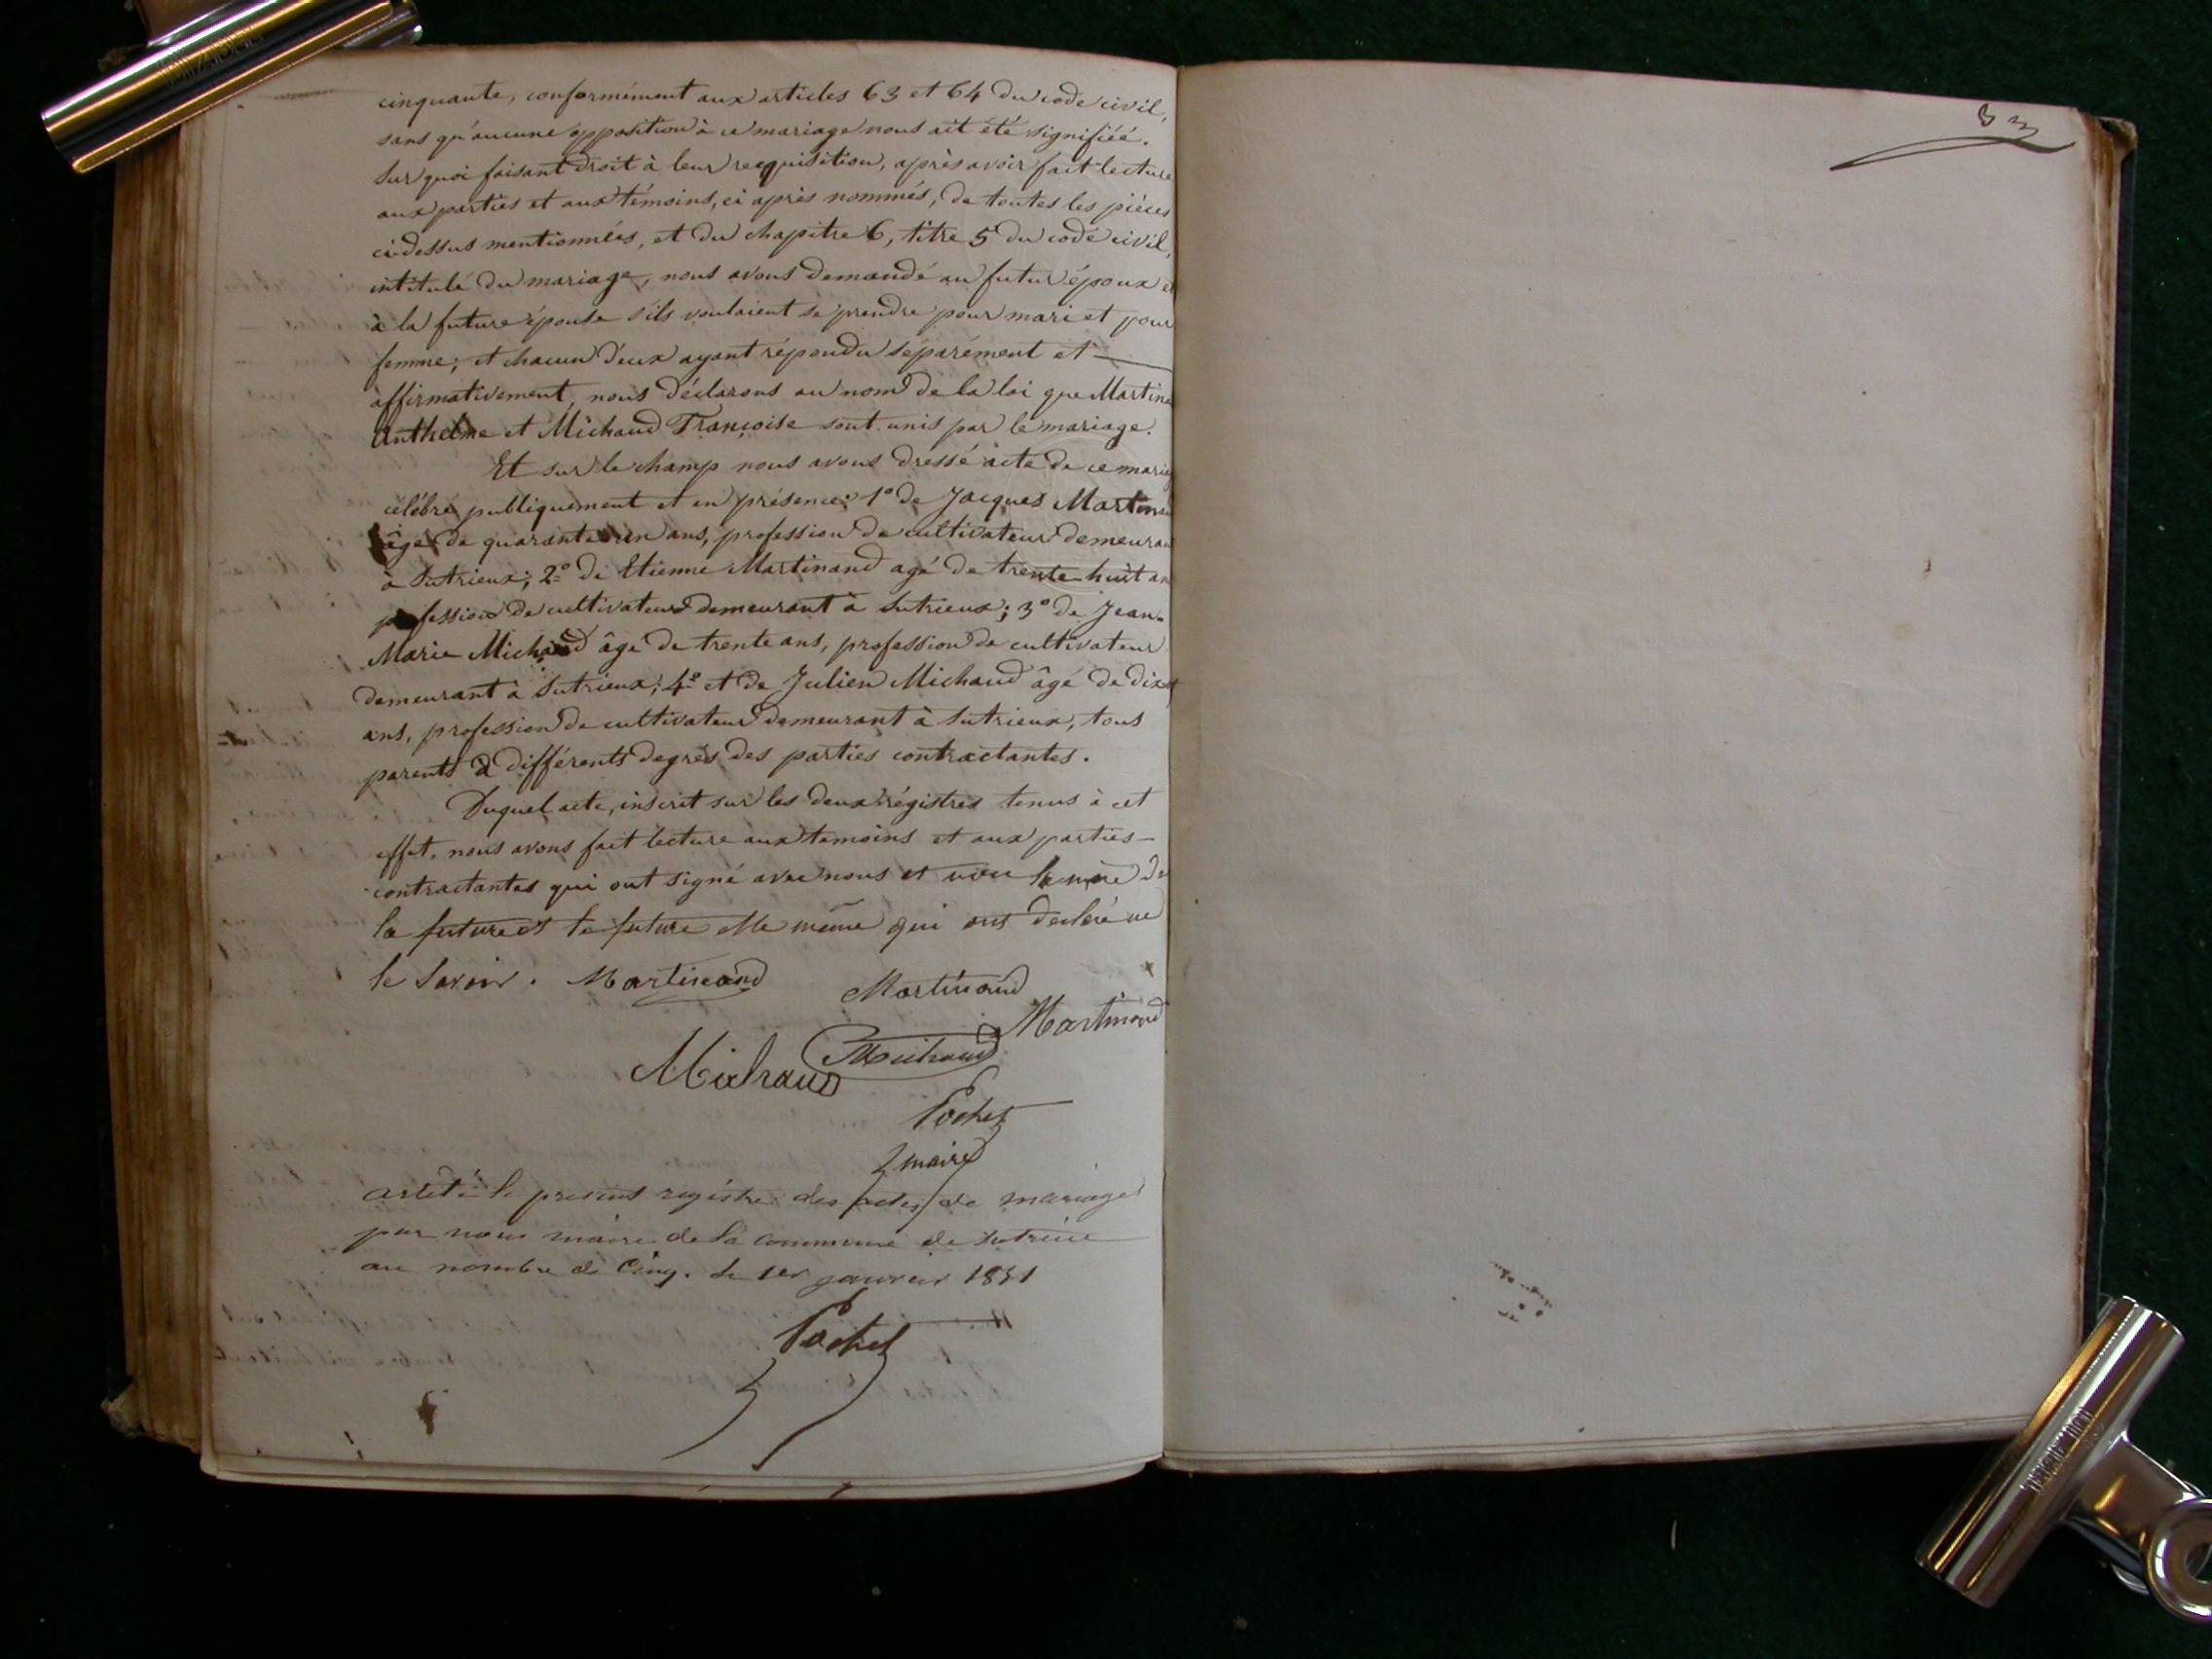 cinquante, conformément aux articles 63 et 64 du code civil,
sans qu'aucune opposition à ce mariage nous ait été signifiée.
Sur quoi faisant droit à leur recquisition, après avoir fait lecture
aux parties et aux témoins, ci après nommés, de toutes les pièces
ci-dessus mentionnées, et du chapitre 6, titre 5 du code civil,
intitulé du mariage, nous avons demandé au futur époux et
à la future épouse s'ils voulaient se prendre pour mari et pour
femme; et chacun d'eux ayant répondu séparément et
affirmativement, nous déclarons au nom de la loi que Martina
Anthelme et Michaud Françoise sont unis par le mariage.
Et sur le champ nous avons dressé acte de ce maria
célébré publiquement et en présence: 1° de Jacques Martina
âgé de quarante un ans, profession de cultivateur demeuran
à Sutrieux; 2° de Etienne Martinand agé de trente huit an
profession de cultivateur demeurant à Sutrieux; 3° de Jean-
Marie Michaud âgé de trente ans, profession de cultivateur
demeurant à Sutrieux; 4° et de Julien Michaud âgé de
ans, profession de cultivateur demeurant à Sutrieux, tous
parents à différents degrés des parties contractantes.
Duquel acte, inscrit sur les deux régistres tenus à cet
effet, nous avons fait lecture aux temoins et aux parties
contractantes qui ont signé avec nous et non la mère de
la future et la future elle même qui ont declaré ne
le Savoir. Martinand Martinand
Martinand
Michaud Michaud
Pochet
maire
arrêté le present registre des actes de mariages
par nous maire de la commune de Sutrieu
au nombre de Cinq. le 1er janvier 1851
Pochet
53